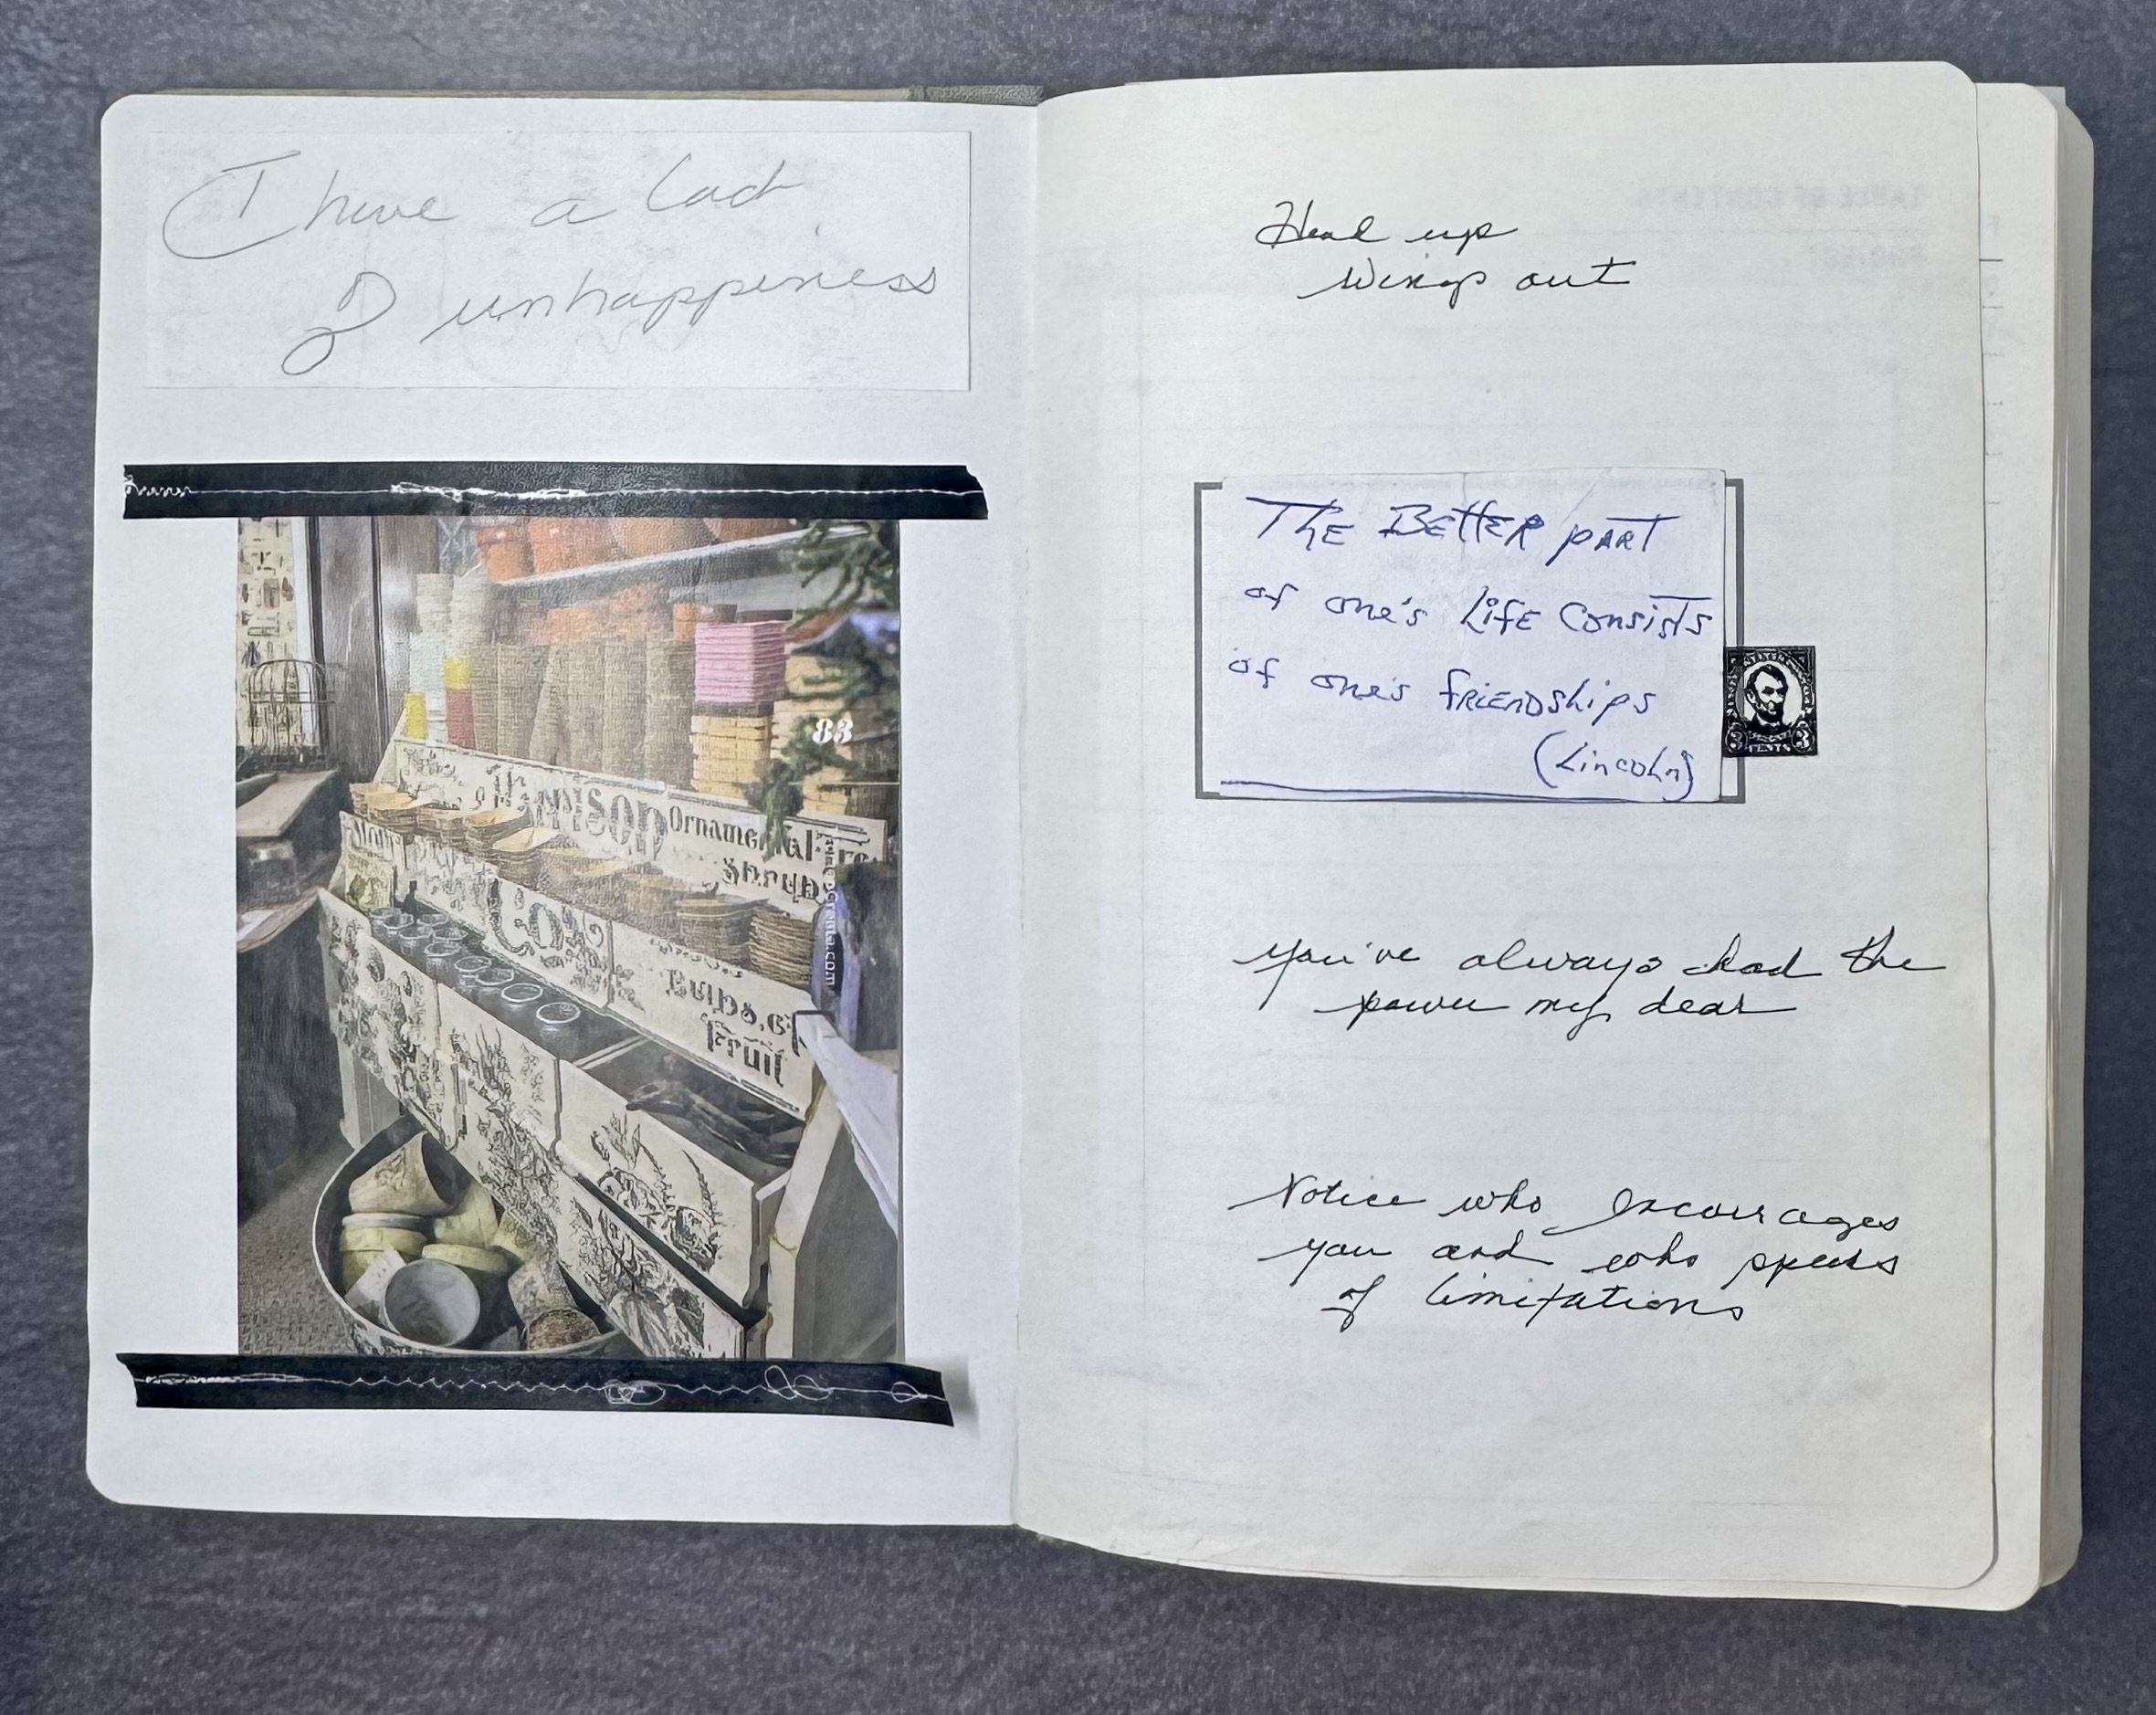 I have a lack
of unhappiness
83
Ornamental
Shrubs
Bulbs, &
Fruit
Head up
Wings out
The Better part
of one's Life Consists
of one's friendships
(Lincoln)
3 CENTS 3
you've always had the
power my dear
Notice who encourages
you and who speaks
of limitations